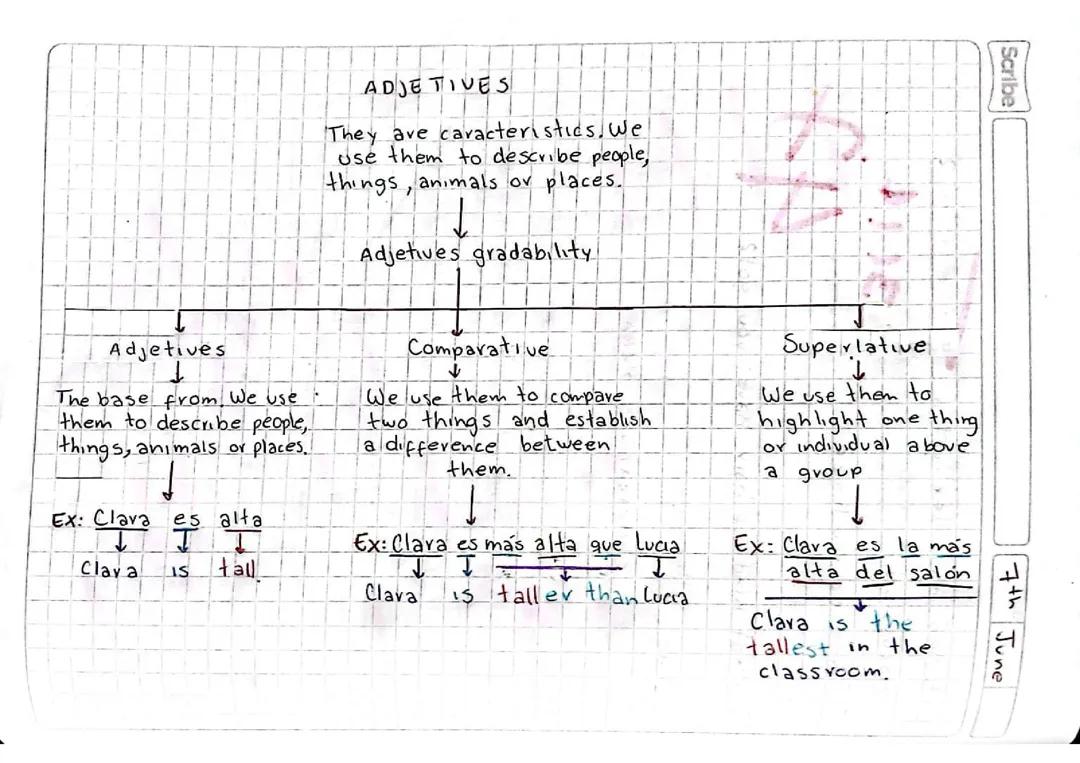 Scribe
ADJETIVES
They are caracteristics. We
use them to describe people,
things, animals or places.
Adjetives gradability
Adjetives
The base from. We use
them to describe people,
things, animals or places.
Ex: Clara es alta
Clara is tall
Comparative
We use them to compare
two things and establish
a difference between
them.
Ex: Clara es más alta que Lucia
Clara is taller than Lucia
Superlative
We use them to
highlight one thing
or individual above
a group
Ex: Clara es la más
alta del salón
Clara is the
tallest in the
classroom.
7th June